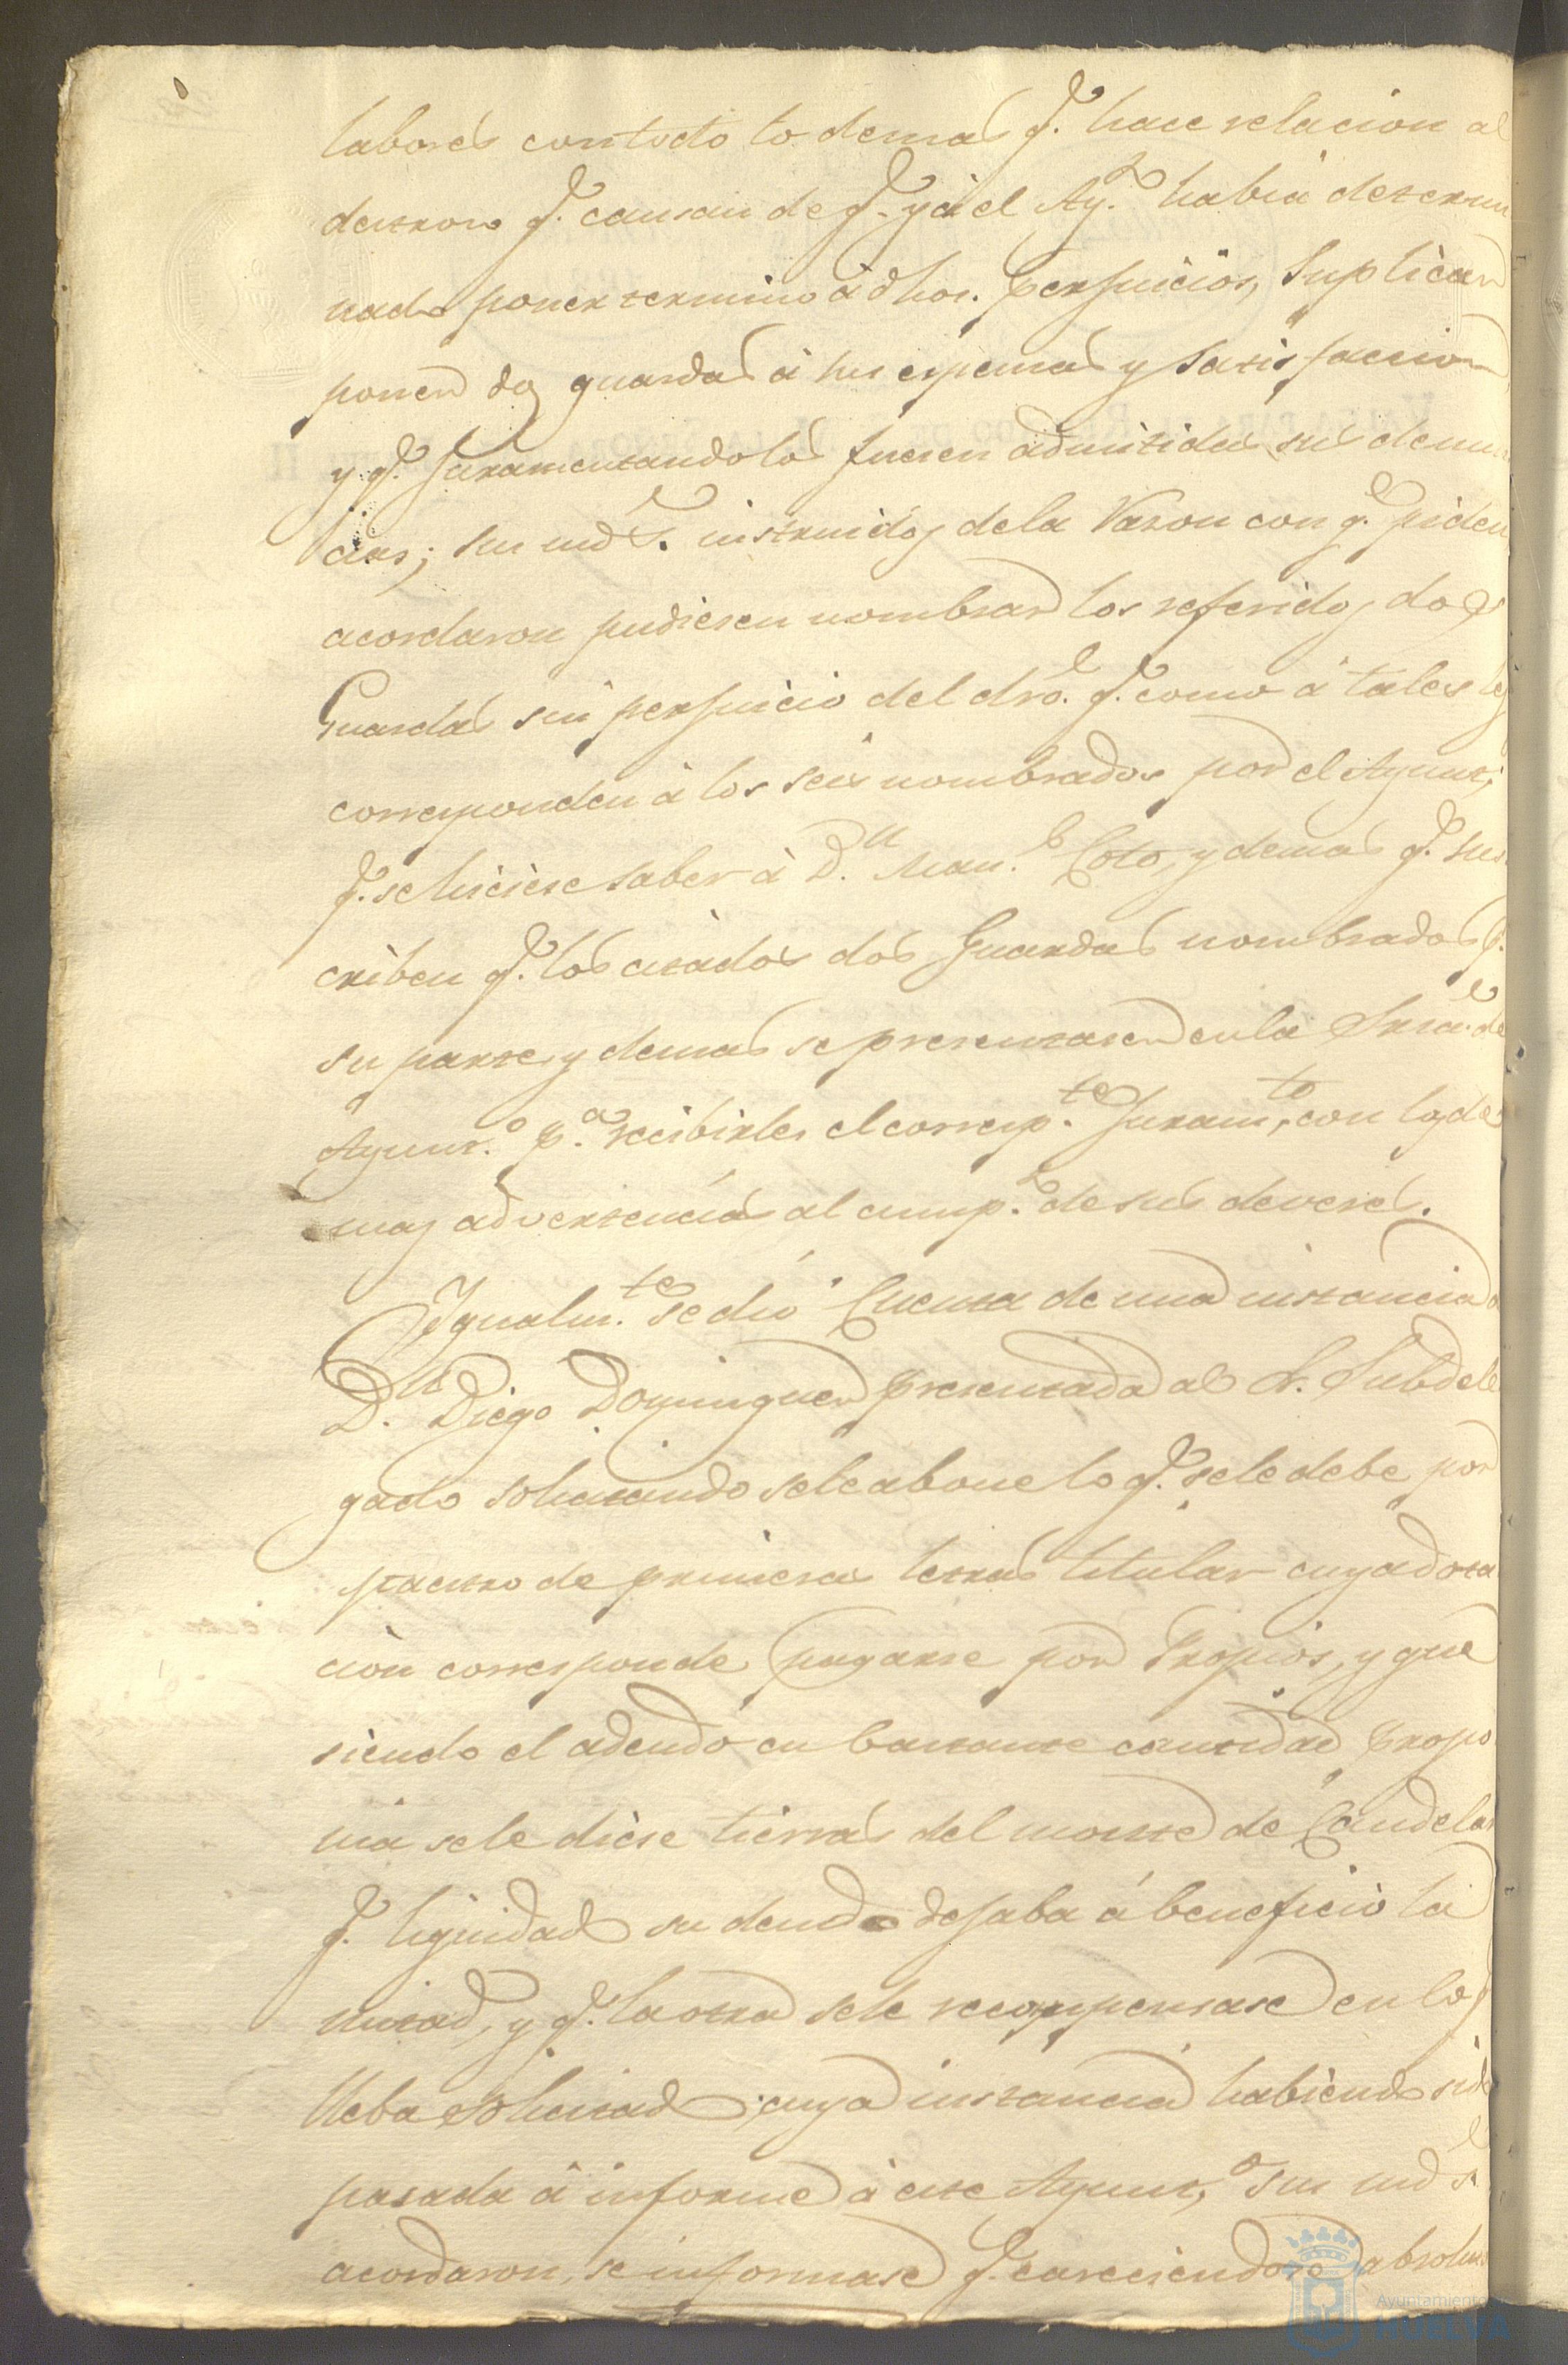 labores con todo lo demas q.e hace relacion al
destrozo q.e causan de q.e ya el Ay.to habia determi
nado poner termino à dhos. perjuicios, Suplican
poner dos guardas à sus espensas y satisfaccion
y q.e Juramentandolos fuesen admitidas sus denun
cias; sus mds. instruidos de la Razon con q.e piden
acordaron pudiesen nombrar los referidos dos
Guardas sin perjuicio del dro. q.e como à tales les
corresponden à los seis nombrados por el Ayunt.o
q.e se hiciese saber à D.n Man.l Coto, y demas q.e sus
criben q.e los citados dos Guardas nombrados p.r
su parte y demas se presentasen en la Sria. de
Ayunt.o p.a recibirles el corresp.te Juram.to, con los de
mas advertencias al cump.o de sus deveres.
Igualm.te se dió Cuenta de una instancia de
D.n Diego Dominguez presentada al S.r Subdele
gado solicitando se le abone lo q.e se le debe por
Maestro de primeras letras titular cuya dota
ciòn corresponde pagarse por Propios, y que
siendo el adeudo en bastante cantidad propo
nia se le diese tierras del monte de Candelas
q.e liquidad su deuda dejaba á beneficio la
mitad, y q.e la otra se le recompensase en los
lleba solicitad; cuya instancia habiendo sido
pasada à informe à este Ayunt.o Sus mds.
acordaron, se informase q.e careciendose absolu
Ayuntamiento de
HUELVA